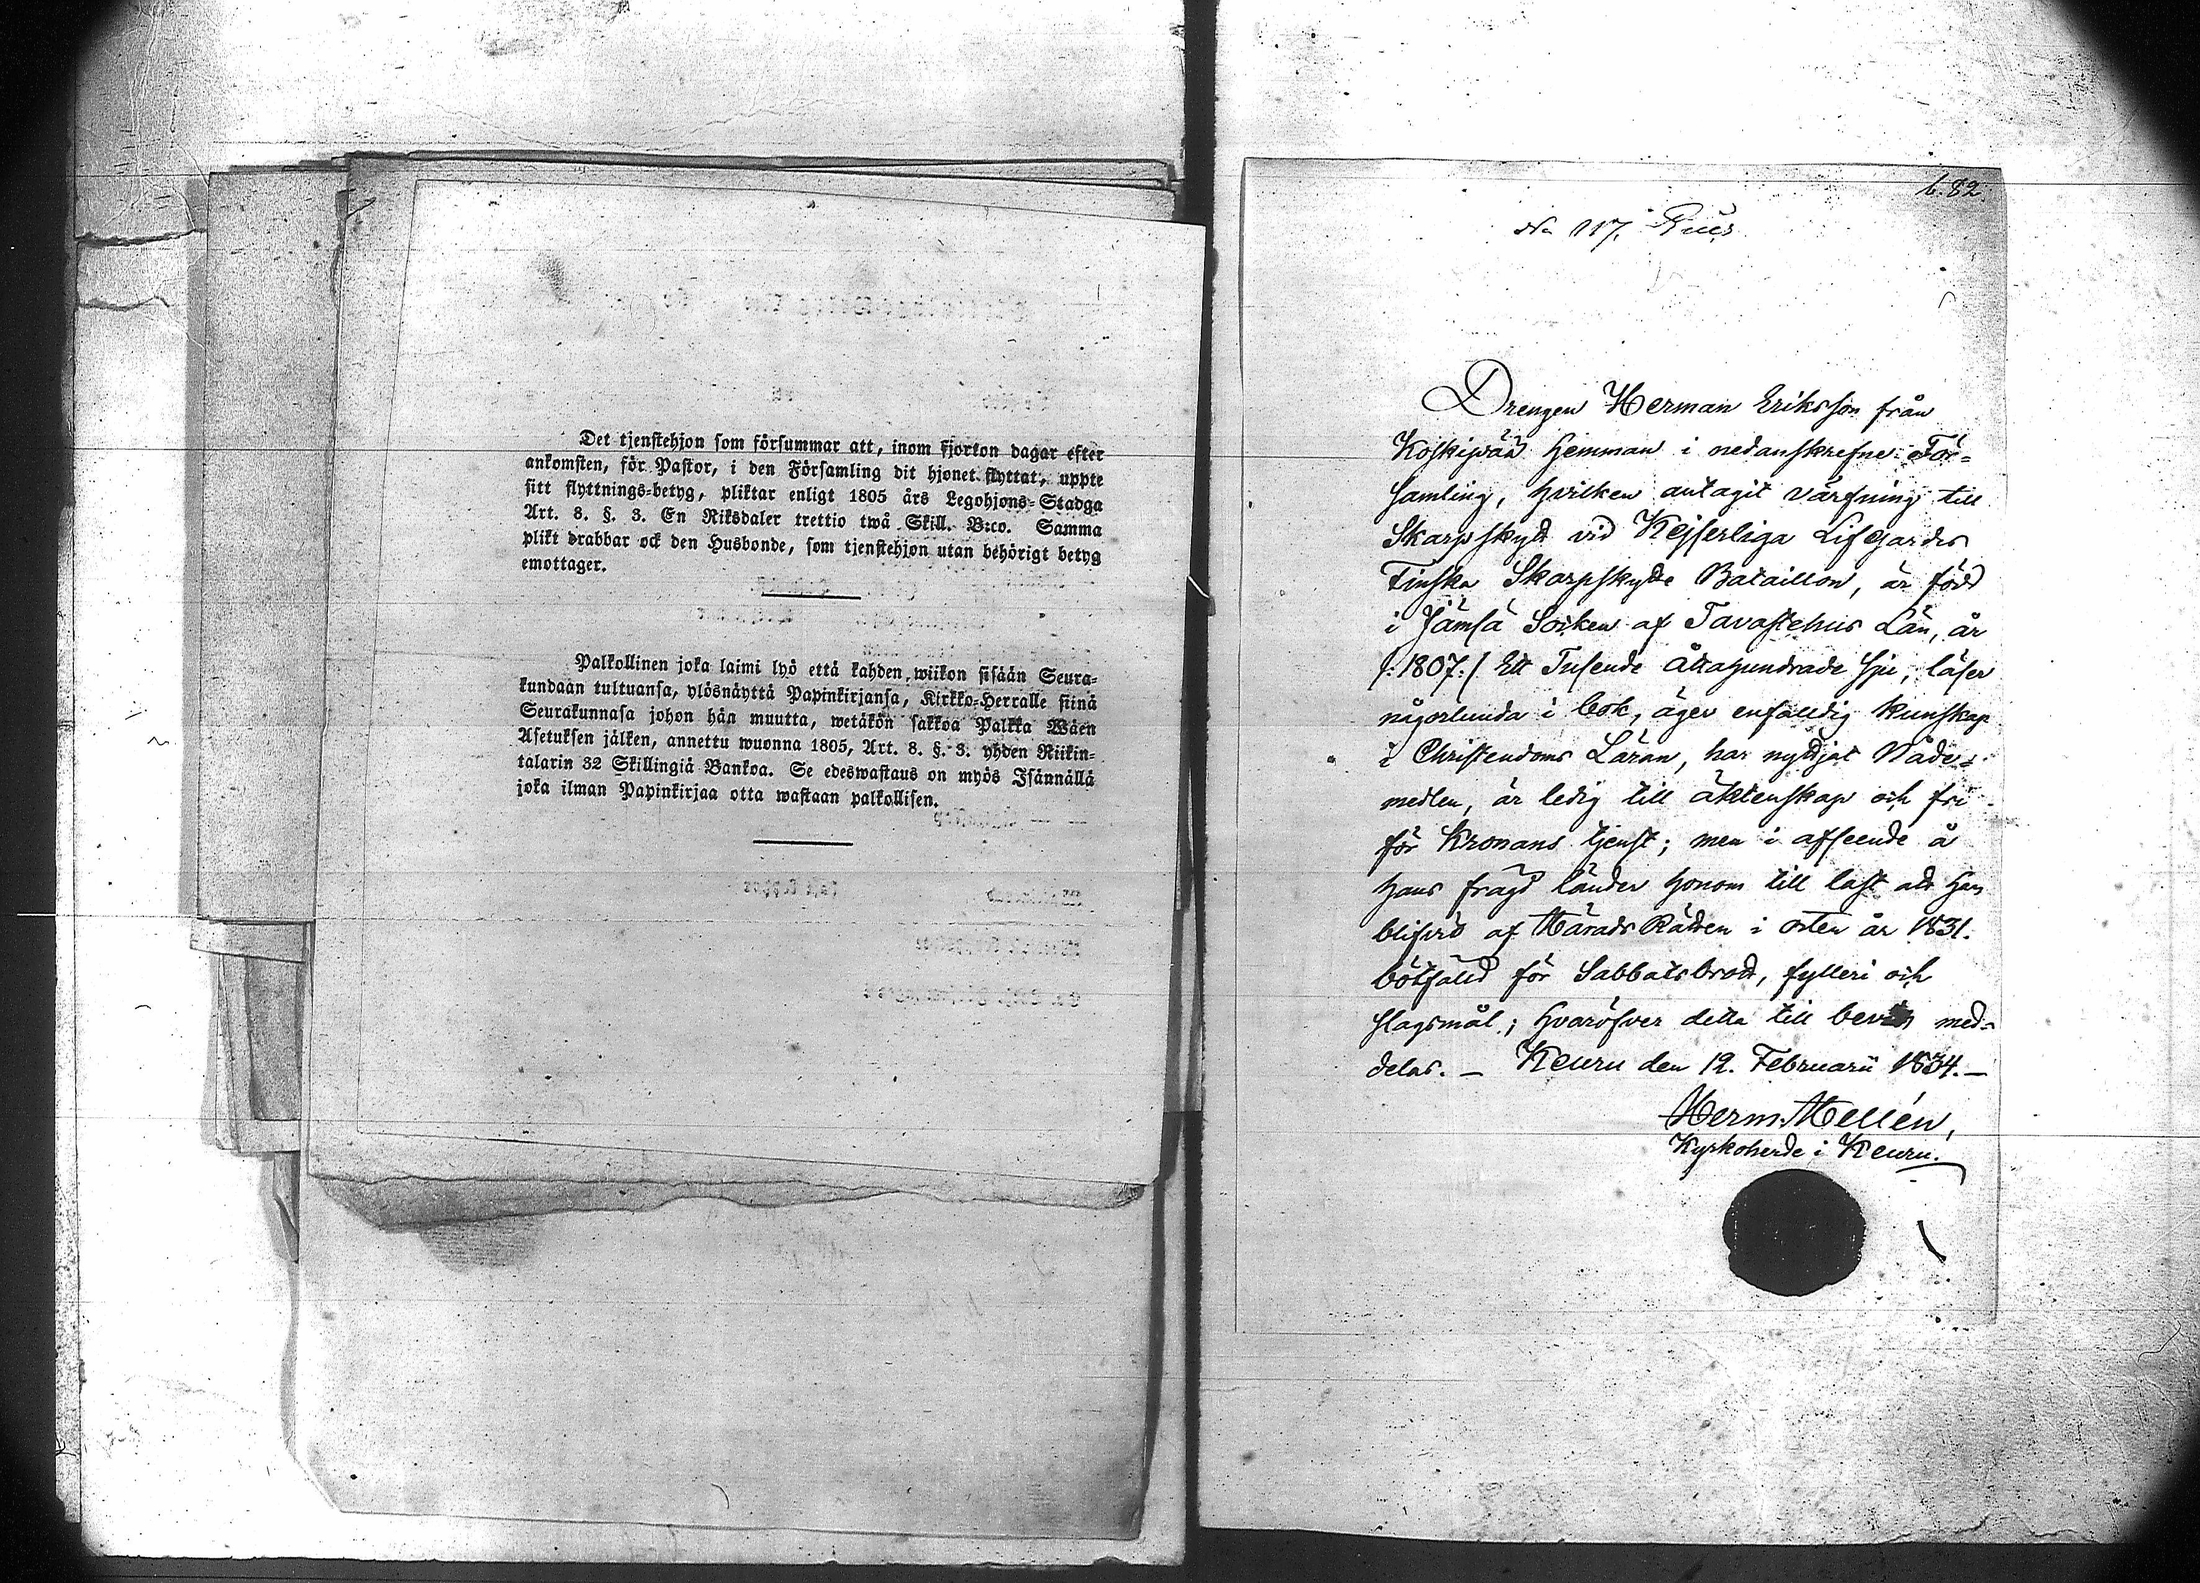 Det tjenstehjon som försummar att, inom fjorton dagar efter
ankomsten, för Pastor, i den Församling dit hjonet flyttat, uppte
sitt flyttnings-betyg, pliktar enligt 1805 års Legohjons-Stadga
Art. 8. §. 3. En Riksdaler trettio twå Skill. B:co. Samma
plikt drabbar ock den Husbonde, som tjenstehjon utan behörigt betyg
emottager.
Palkollinen joka laimi lyö että kahden wiikon sisään Seura-
kundaan tultuansa, ylösnäyttä Papinkirjansa, Kirkko-Herralle siinä
Seurakunnasa johon hän muutta, wetäkön sakkoa Palkka Wäen
Asetuksen jälken, annettu wuonna 1805, Art. 8. §. 3. yhden Riikin-
talarin 32 Skillingiä Bankoa. Se edeswastaus on myös Isännällä
joka ilman Papinkirjaa otta wastaan palkollisen.
b. 82.
No 117.
Drengen Herman Eriksson från
Koskipää Hemman i nedanskrefne För-
samling, hvilken antagit värfning till
Skarpskytt vid Kejserliga Lifgardes
Finska Skarpskytte Bataillon, är född
i Jämsä Socken af Tavastehus Län, år
/: 1807 :/ Ett Tusende Åttahundrade sju, läser
någorlunda i bok, äger enfaldig kunskap
i Christendoms Läran, har nyttjat Nåde-
medlen, är ledig till äktenskap och fri
för Kronans tjenst; men i afseende å
hans frägd länder honom till last att han
blifvit af Härads Rätten i orten år 1831.
bötfälld för Sabbatsbrott, fylleri och
slagsmål; hvaröfver detta till bevis med-
delas. _ Keuru den 12. Februarii 1834. _
Herm. Hellén,
Kyrkoherde i Keuru.